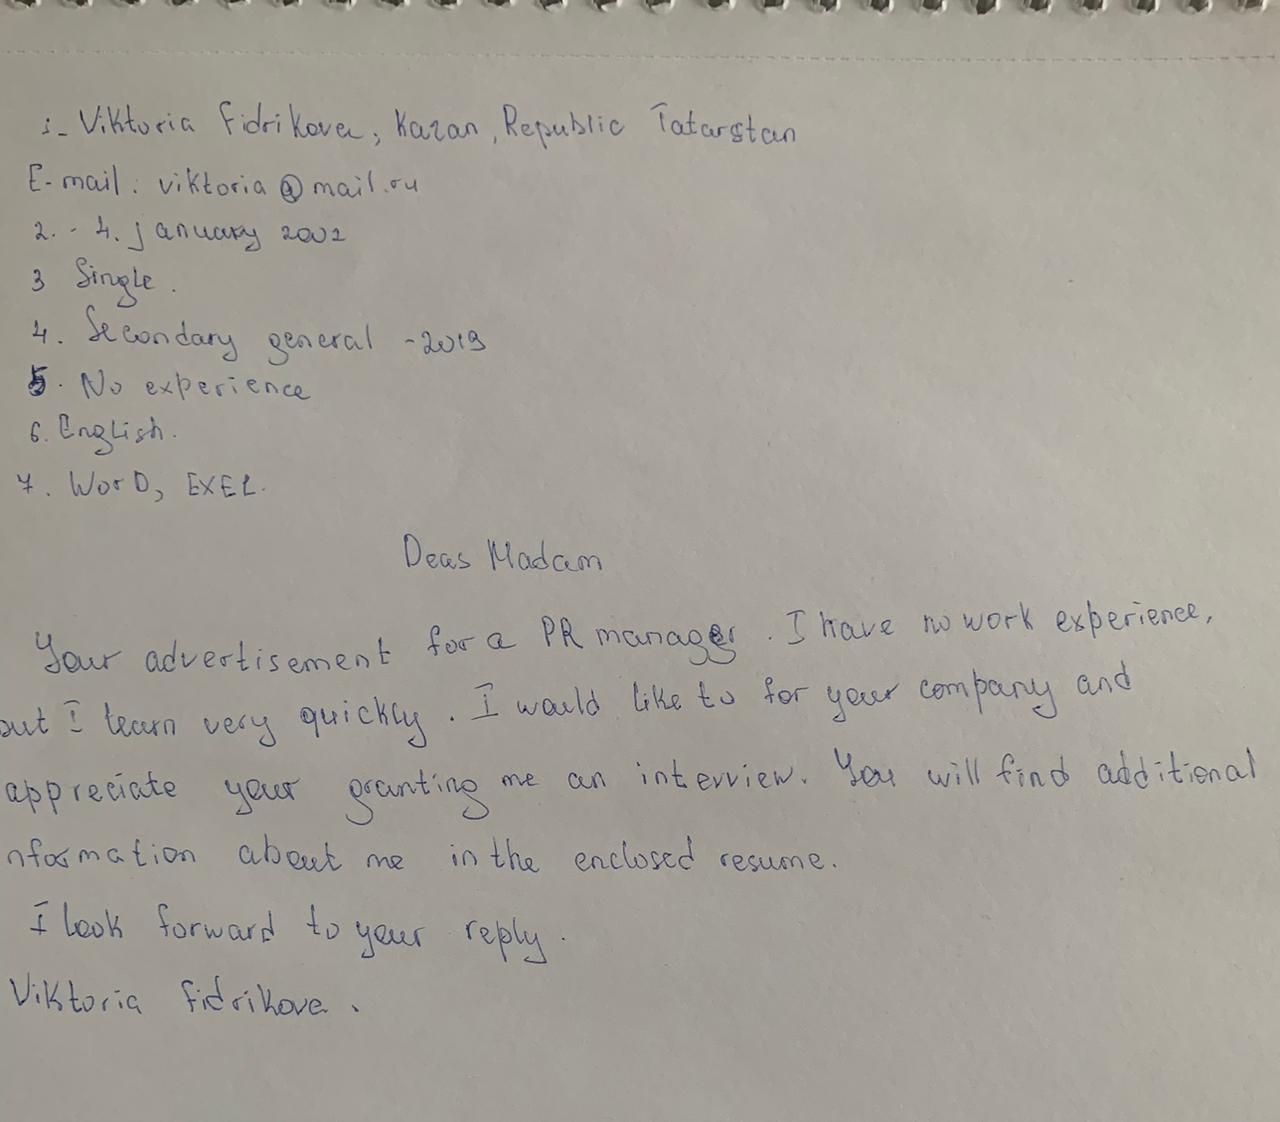 1- Viktoria Fidrikova, Kazan, Republic Tatarstan
E-mail: viktoria@mail.ru
2. - 4. january 2002
3 Single.
4. Secondary general - 2019
5. No experience
6. English.
7. WorD, EXEL.
Deas Madam
Your advertisement for a PR manager. I have no work experience,
but I learn very quickly. I would like to for your company and
appreciate your granting me an interview. You will find additional
nformation about me in the enclosed resume.
I look forward to your reply.
Viktoria Fidrikova.